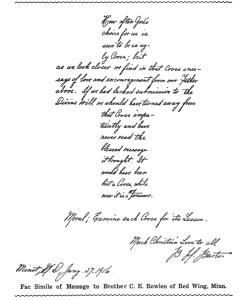 How often God's
choice for us is
seen to be an ug-
ly Cross; but
as we look closer we find in that Cross a mes-
sage of love and encouragement from our Father
above. If we had lacked submission to the
Divine will or should have turned away from
that Cross impa-
tiently and have
never read the
blessed message
it brought. It
would have been
but a Cross, while
now it is a
Moral; Examine each Cross for its Lesson.
Much Christian Love to all
Barton
Minot, N. D., Jany. 27, 1916.
Fac Simile of Message to Brother C. E. Rowlen of Red Wing, Minn.